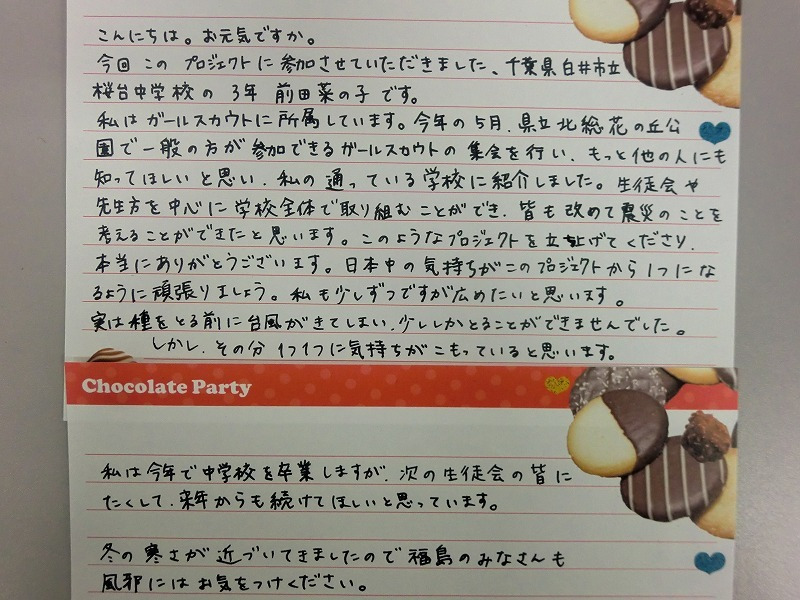 こんにちは。お元気ですか。
今回このプロジェクトに参加させていただきました、千葉県白井市立
桜台中学校の3年 前田菜の子です。
私はガールスカウトに所属しています。今年の5月、県立北総花の丘公
園で一般の方が参加できるガールスカウトの集会を行い、もっと他の人にも
知ってほしいと思い、私の通っている学校に紹介しました。生徒会や
先生方を中心に学校全体で取り組むことができ、皆も改めて震災のことを
考えることができたと思います。このようなプロジェクトを立ち上げてくださり、
本当にありがとうございます。日本中の気持ちがこのプロジェクトから1つにな
るように頑張りましょう。私も少しずつですが広めたいと思います。
実は種をとる前に台風がきてしまい、少ししかとることができませんでした。
しかし、その分1つ1つに気持ちがこもっていると思います。
Chocolate Party
私は今年で中学校を卒業しますが、次の生徒会の皆に
たくして、来年からも続けてほしいと思っています。
冬の寒さが近づいてきましたので福島のみなさんも
風邪にはお気をつけください。